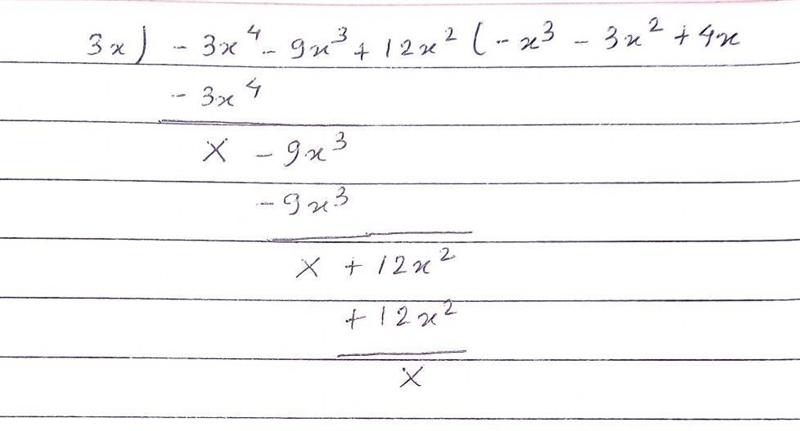 3x) - 3x⁴ - 9x³ + 12x² ( - x³ - 3x² + 4x
- 3x⁴
X - 9x³
- 9x³
X + 12x²
+ 12x²
X